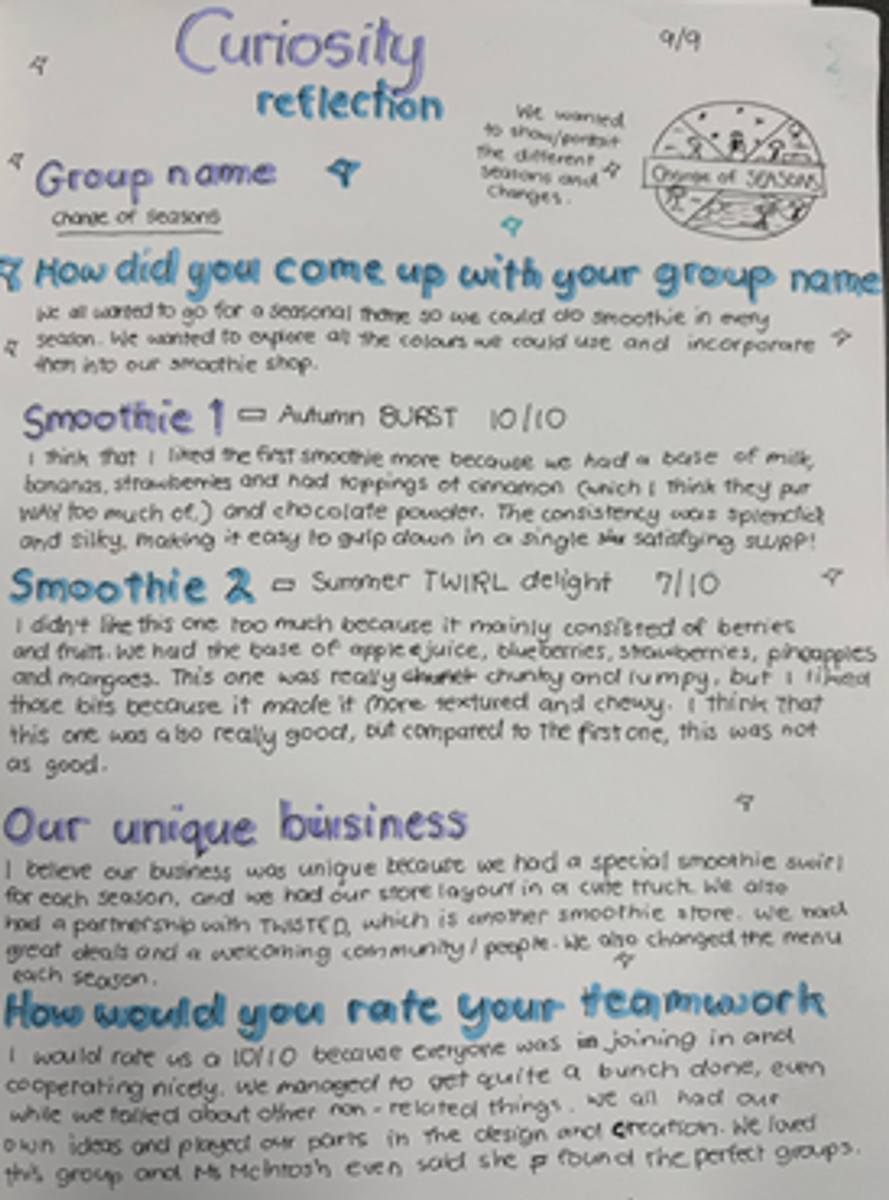 Curiosity
9/9
reflection
We wanted
to show/portrait
the different
seasons and
changes.
Change of SEASONS
Group name
change of seasons
How did you come up with your group name
We all wanted to go for a seasonal theme so we could do smoothie in every
season. We wanted to explore all the colours we could use and incorporate
them into our smoothie shop.
Smoothie 1 Autumn BURST 10/10
I think that I liked the first smoothie more because we had a base of milk,
bananas, strawberries and had toppings of cinnamon (which I think they put
WAY too much of,) and chocolate powder. The consistency was splendid
and silky, making it easy to gulp down in a single satisfying SLURP!
Smoothie 2 Summer TWIRL delight 7/10
I didn't like this one too much because it mainly consisted of berries
and fruits. We had the base of apple juice, blueberries, strawberries, pineapples
and mangoes. This one was really chunky and lumpy, but I liked
those bits because it made it more textured and chewy. I think that
this one was also really good, but compared to the first one, this was not
as good.
Our unique business
I believe our business was unique because we had a special smoothie swirl
for each season, and we had our store layout in a cute truck. We also
had a partnership with TWISTED, which is another smoothie store. We had
great deals and a welcoming community/people. We also changed the menu
each season.
How would you rate your teamwork
I would rate us a 10/10 because everyone was joining in and
cooperating nicely. We managed to get quite a bunch done, even
while we talked about other non-related things. We all had our
own ideas and played our parts in the design and creation. We loved
this group and Ms McIntosh even said she found the perfect groups.